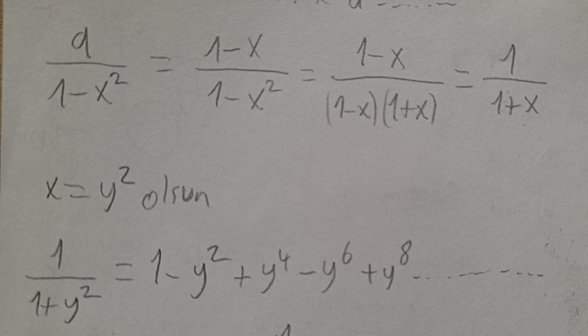 a/(1-x²) = (1-x)/(1-x²) = (1-x)/((1-x)(1+x)) = 1/(1+x)
x = y² olsun
1/(1+y²) = 1 - y² + y⁴ - y⁶ + y⁸ - - - - - - -